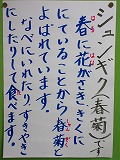 シュンギク(春菊)です
春に花がさききくに
にていることから春菊と
よばれています。
なべにいれたり、すきやき
にしたりして食べます。